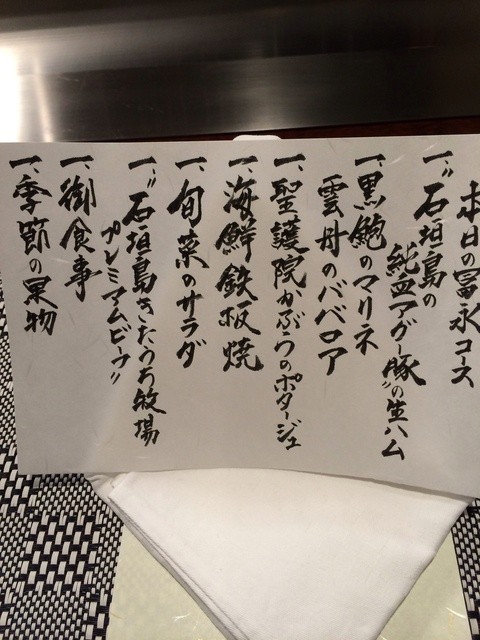 本日の冨永コース
一、"石垣島の
純血アグー豚"の生ハム
一、黒鮑のマリネ
雲丹のババロア
一、聖護院かぶらのポタージュ
一、海鮮鉄板焼
一、旬菜のサラダ
一、"石垣島きたうち牧場
プレミアムビーフ"
一、御食事
一、季節の果物